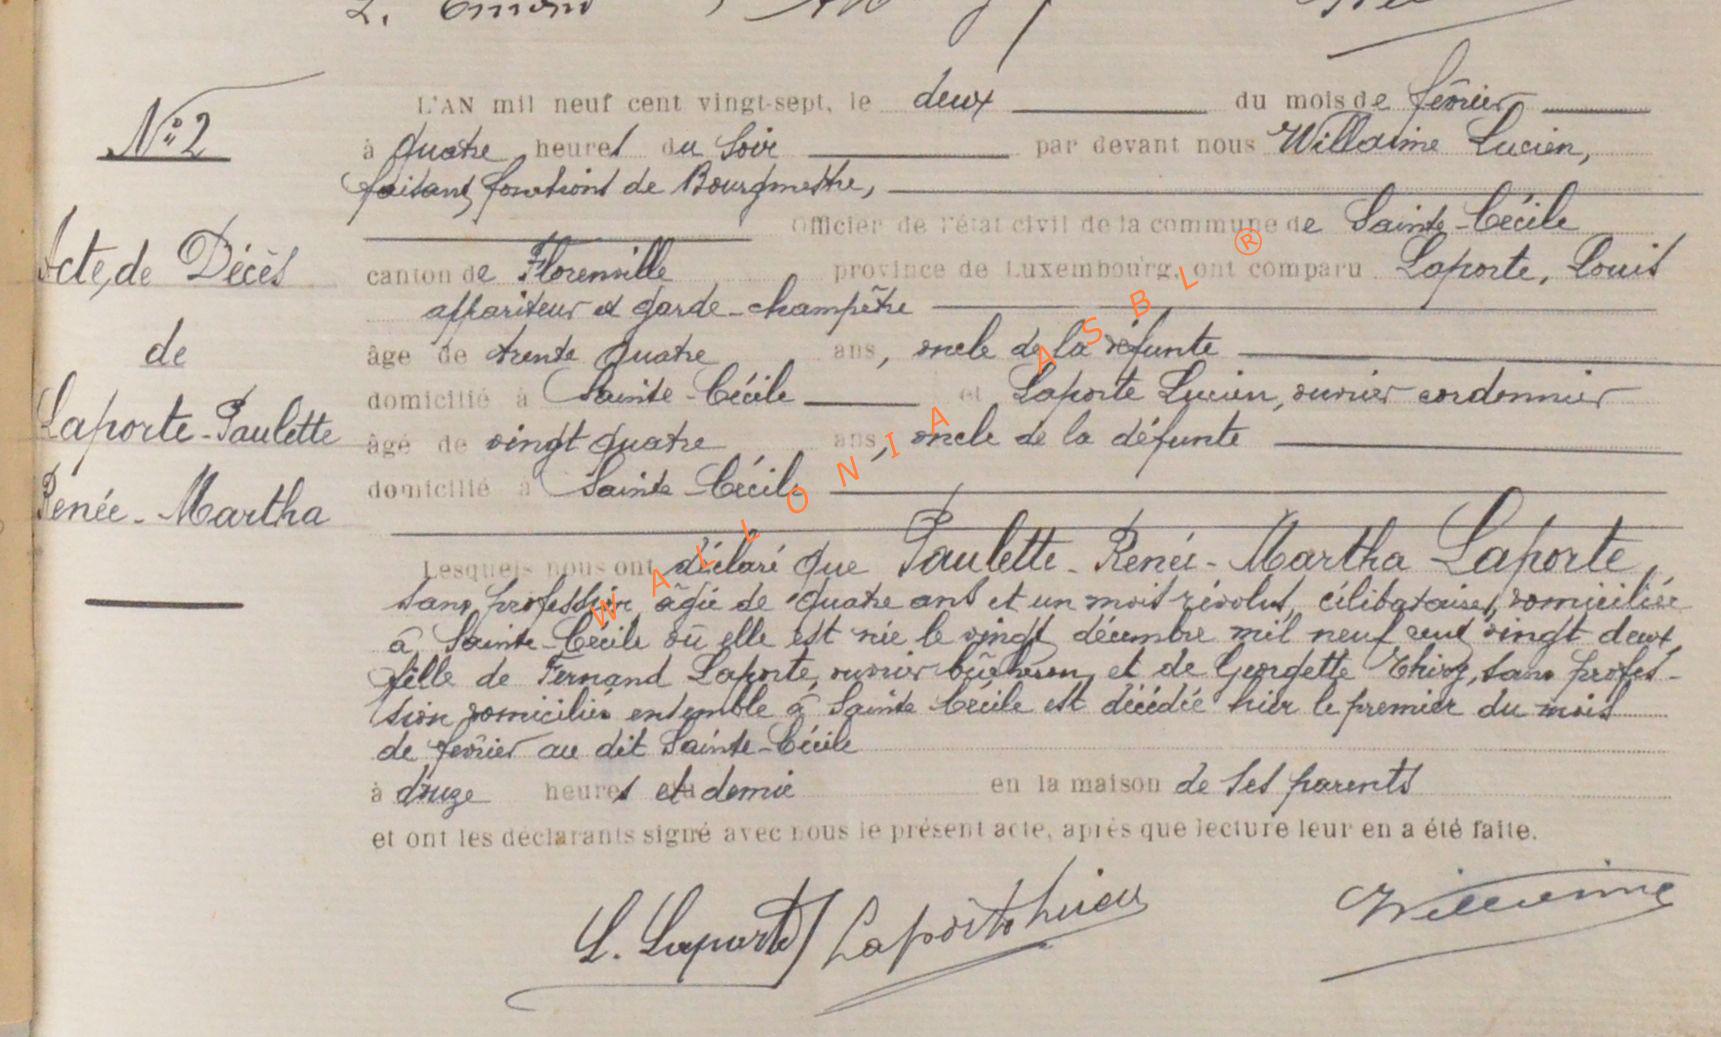 L. Emond
No 2
L'AN mil neuf cent vingt-sept, le deux du mois de février
à quatre heures du soir par devant nous Willaime Lucien,
faisant fonctions de Bourgmestre,
Officier de l'état civil de la commune de Sainte-Cécile
Acte de Décès
canton de Florenville province de Luxembourg, ont comparu Laporte, Louis
appariteur et garde-champêtre
de
âge de trente quatre ans, oncle de la défunte
domicilié à Sainte-Cécile et Laporte Lucien, ouvrier cordonnier
Laporte-Paulette
âgé de vingt quatre ans, oncle de la défunte
domicilié à Sainte-Cécile
Renée-Martha
Lesquels nous ont déclaré que Paulette-Renée-Martha Laporte,
sans profession âgée de quatre ans et un mois révolus, célibataire, domiciliée
à Sainte-Cécile où elle est née le vingt décembre mil neuf cent vingt deux,
fille de Fernand Laporte, ouvrier bûcheron, et de Georgette Thiry, sans profes-
sion domiciliés ensemble à Sainte Cécile est décédée hier le premier du mois
de février au dit Sainte-Cécile
à douze heures et demie en la maison de ses parents
et ont les déclarants signé avec nous le présent acte, après que lecture leur en a été faite.
L. Laporte Laporte Lucien Willaime
WALLONIA ASBL ®